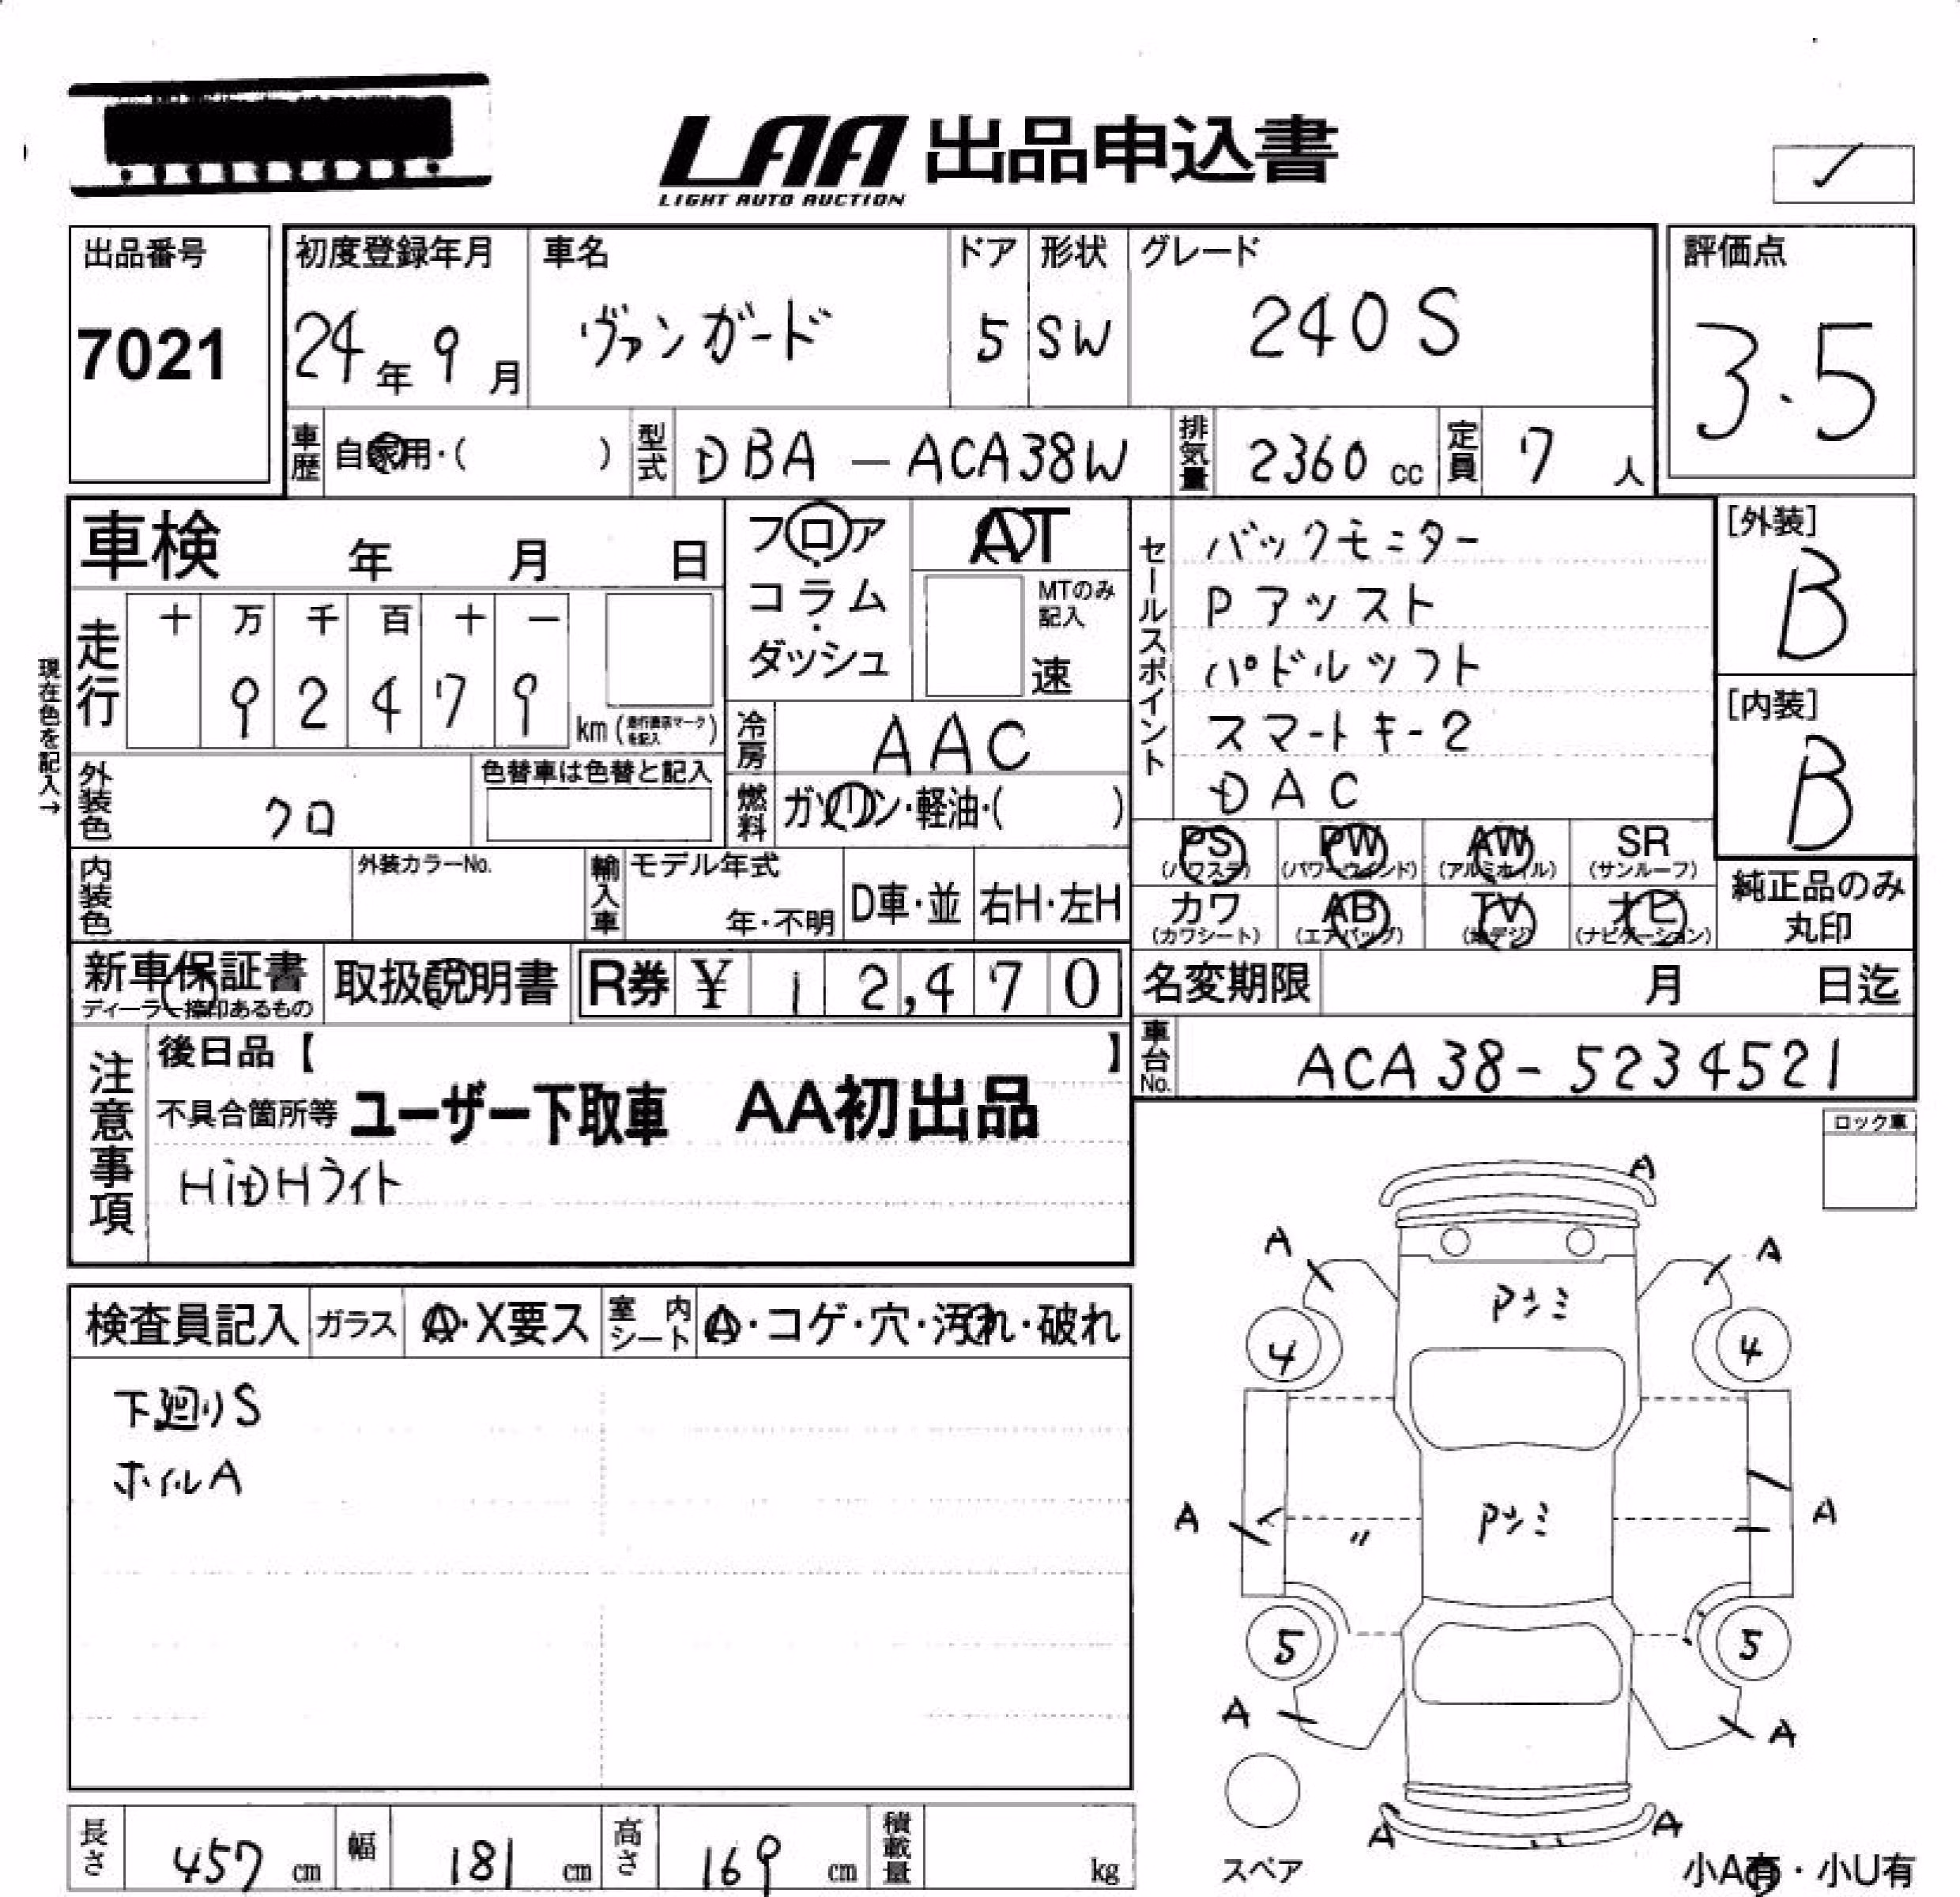 LAA 出品申込書
LIGHT AUTO AUCTION
出品番号
7021
初度登録年月
24年 9月
車名
ヴァンガード
ドア
5
形状
SW
グレード
240S
評価点
3.5
車歴 自家用・( )
型式 DBA-ACA38W
排気量 2360 cc
定員 7 人
車検 年 月 日
走行 十 万 千 百 十 一
9 2 4 7 9 km
現在色を記入→
外装色 クロ
色替車は色替と記入
内装色
外装カラーNo.
フロア・コラム・ダッシュ
AT
MTのみ記入
速
冷房 AAC
燃料 ガソリン・軽油・( )
輸入車 モデル年式 年・不明
D車・並 右H・左H
セールスポイント
バックモニター
Pアシスト
パドルシフト
スマートキー2
DAC
[外装]
B
[内装]
B
PS (パワステ)
PW (パワーウインド)
AW (アルミホイル)
SR (サンルーフ)
カワ (カワシート)
AB (エアバッグ)
TV (地デジ)
ナビ (ナビゲーション)
純正品のみ丸印
新車保証書
ディーラー捺印あるもの
取扱説明書
R券 ¥ 12,470
名変期限 月 日迄
車台No. ACA38-5234521
注意事項
後日品【 】
不具合箇所等 ユーザー下取車 AA初出品
HiDHライト
ロック車
検査員記入
ガラス A・X要ス
室内シート A・コゲ・穴・汚れ・破れ
下廻りS
ホイルA
A
A
A
Pツミ
4
4
A
〃
Pツミ
A
5
5
A
A
A
A
スペア
小A有・小U有
長さ 457 cm
幅 181 cm
高さ 169 cm
積載量 kg